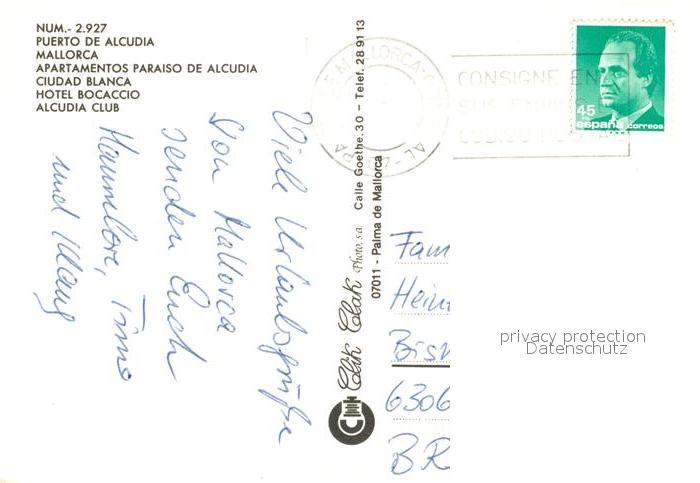 NUM.- 2.927
PUERTO DE ALCUDIA
MALLORCA
APARTAMENTOS PARAISO DE ALCUDIA
CIUDAD BLANCA
HOTEL BOCACCIO
ALCUDIA CLUB
Viele Urlaubsgrüße
Von Mallorca
senden Euch
Hannelore, Timo
und Klaus
Clik Clak Photo, s.a. Calle Goethe, 30 - Telef. 28 91 13
07011 - Palma de Mallorca
MALLORCA
CONSIGNE EN
SUS ENVIOS
CODIGO
45
españa correos
Fam
Hein
Bism
6306
BR
privacy protection
Datenschutz